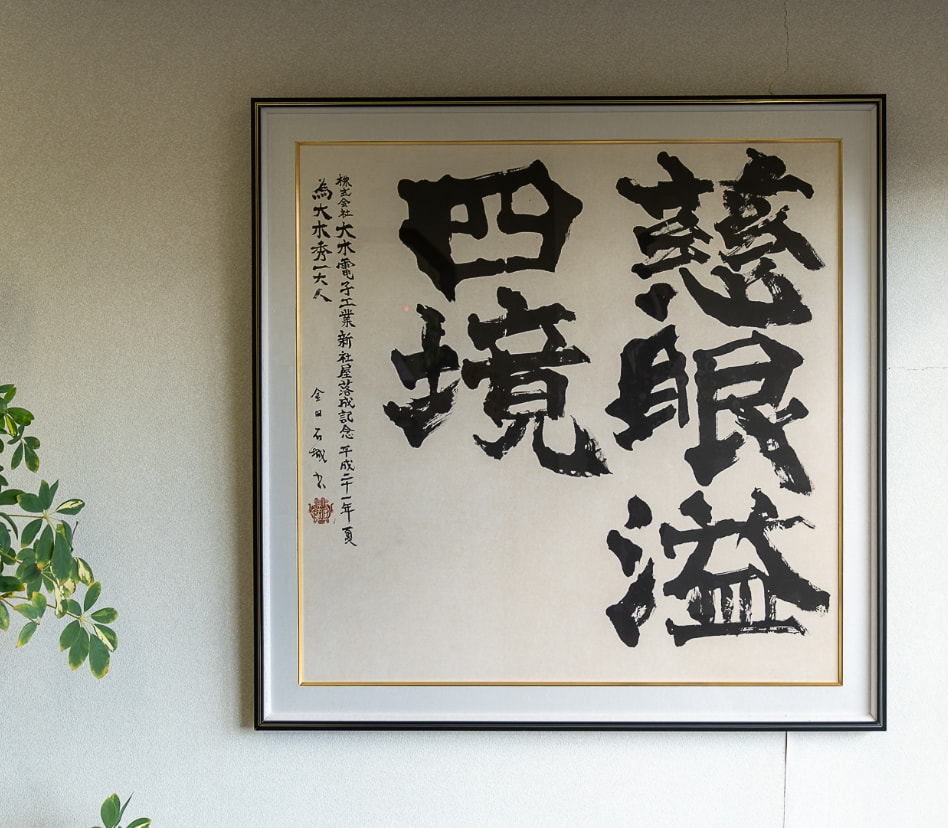 慈眼溢
四境
株式会社大木電子工業新社屋落成記念平成二十一年夏
為大木秀一大人
金田石城書